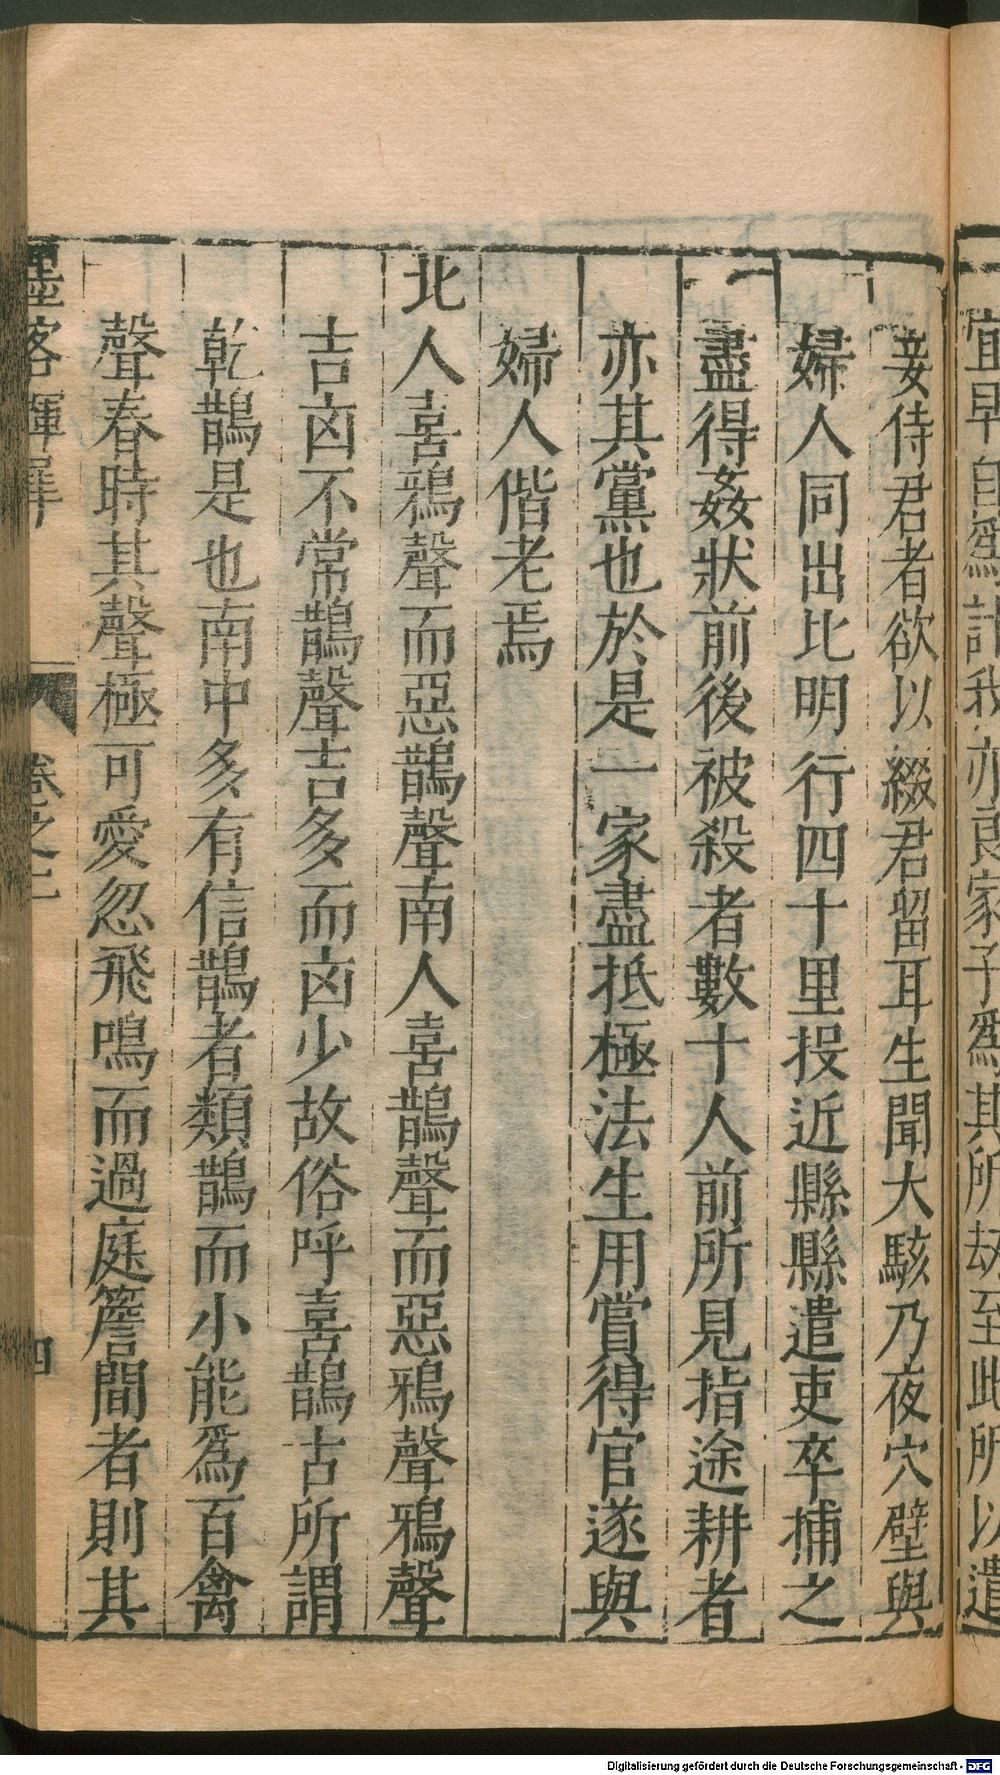 宜早自爲計我亦良家子爲其所劫至此所以遣
妾侍君者欲以綴君留耳生聞大駭乃夜穴壁與
婦人同出比明行四十里投近縣縣遣吏卒捕之
盡得姦狀前後被殺者數十人前所見指途耕者
亦其黨也於是一家盡抵極法生用賞得官遂與
婦人偕老焉
北人喜鴉聲而惡鵲聲南人喜鵲聲而惡鴉聲鴉聲
吉㐫不常鵲聲吉多而㐫少故俗呼喜鵲古所謂
乾鵲是也南中多有信鵲者類鵲而小能爲百禽
聲春時其聲極可愛忽飛鳴而過庭簷間者則其
墨客揮犀 卷之二 四
Digitalisierung gefördert durch die Deutsche Forschungsgemeinschaft - DFG